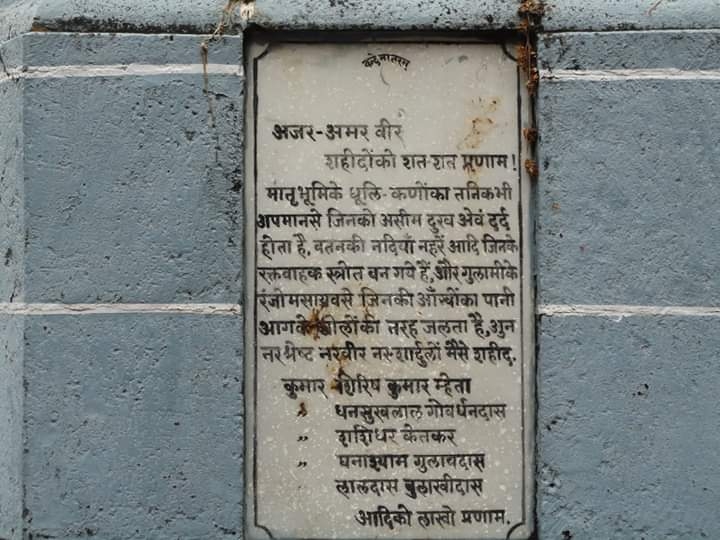 वन्दे मातरम्
अजर-अमर वीर
शहीदोंको शत-शत प्रणाम!
मातृभूमिके धूलि-कणोंका तनिकभी
अपमानसे जिनको असीम दुख अेवं दर्द
होता है, वतनकी नदियाँ नहरें आदि जिनके
रक्तवाहक स्त्रोत बन गये हैं, और गुलामीके
रंजोमसायबसे जिनकी आँखोंका पानी
आगके शोलोंकी तरह जलता है, अुन
नरश्रेष्ट नरवीर नर-शार्दुलों मैसे शहीद.
कुमार शिरिष कुमार म्हेता
" धनसुखलाल गोवर्धनदास
" शशिधर केतकर
" घनाश्याम गुलाबदास
लालदास बुलाखीदास
आदिको लाखो प्रणाम.